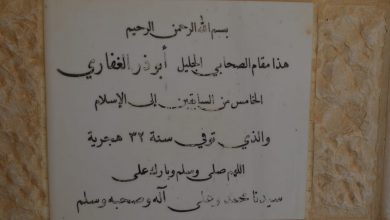 بسم الله الرحمن الرحيم
هذا مقام الصحابي الجليل أبو ذر الغفاري
الخامس من السابقين إلى الإسلام
والذي توفي سنة ٣٢ هجرية
اللهم صلى وسلم وبارك على
سيدنا محمد وعلى آله وصحبه وسلم